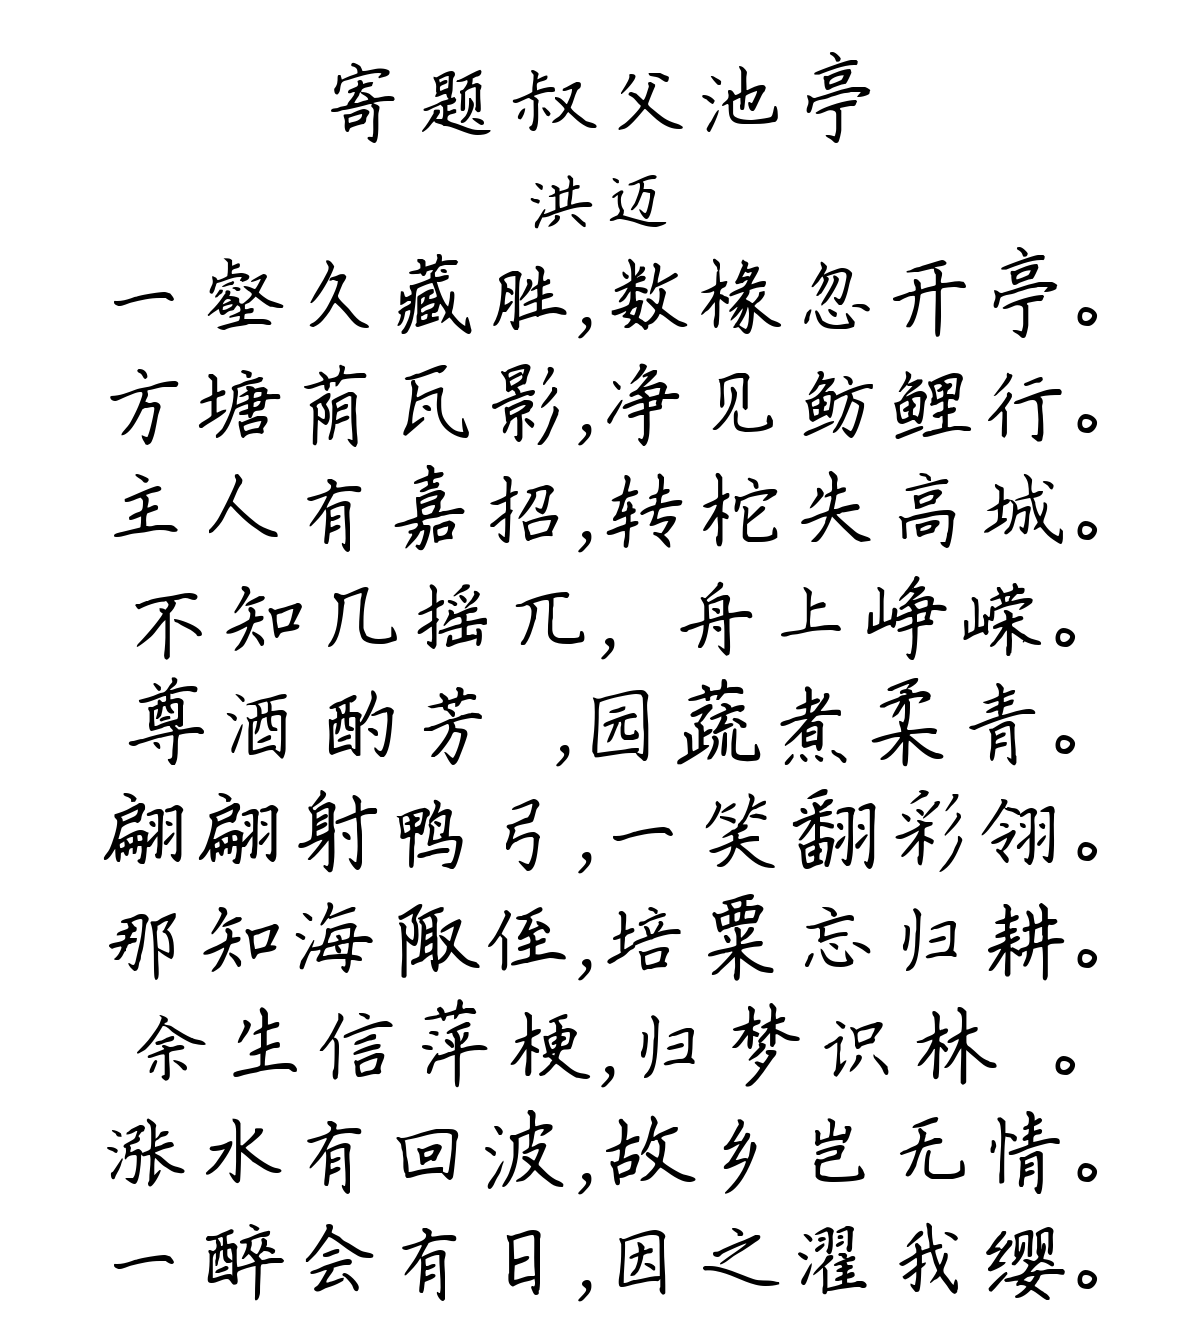 寄题叔父池亭
洪迈
一壑久藏胜,数椽忽开亭。
方塘荫瓦影,净见鲂鲤行。
主人有嘉招,转柁失高城。
不知几摇兀,舟上峥嵘。
尊酒酌芳 ,园蔬煮柔青。
翩翩射鸭弓,一笑翻彩翎。
那知海陬侄,培粟忘归耕。
余生信萍梗,归梦识林 。
涨水有回波,故乡岂无情。
一醉会有日,因之濯我缨。